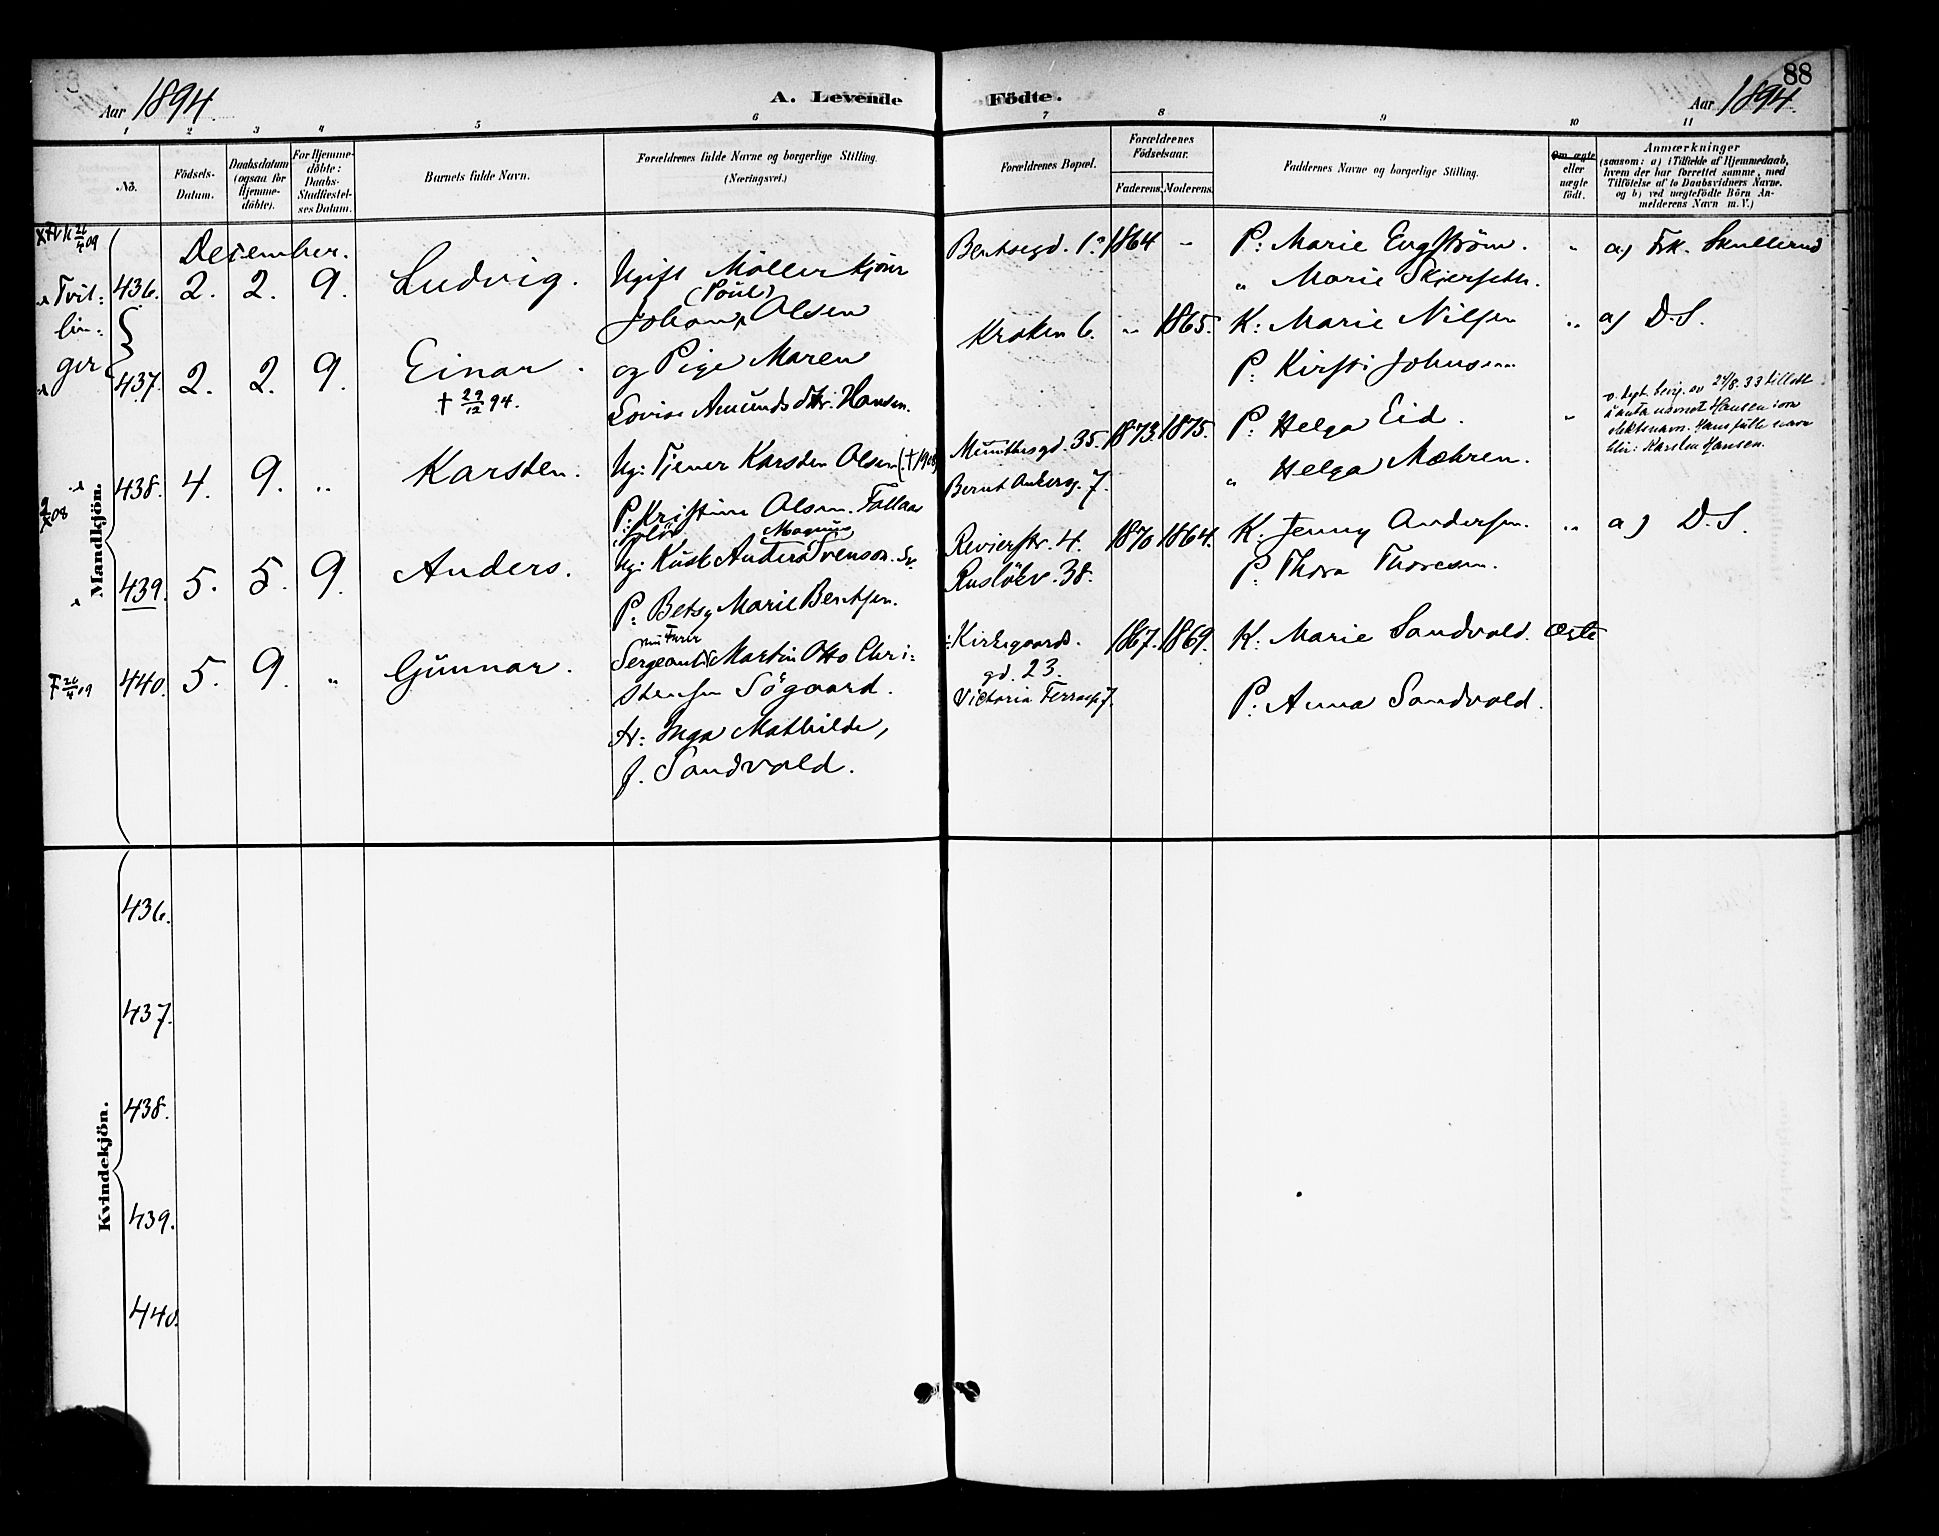 88
Aar 1894.
A. Levende Födte.
Aar 1894.
1 2 3 4 5 6 7 8 9 10 11
No.
Födsels-Datum.
Daabsdatum (ogsaa for Hjemme-döbte).
For Hjemme-döbte: Daabs-Stadfæstel-ses Datum.
Barnets fulde Navn.
Forældrenes fulde Navne og borgerlige Stilling.
(Næringsvei.)
Forældrenes Bopæl.
Forældrenes Födselsaar.
Faderens. Moderens.
Faddernes Navne og borgerlige Stilling.
Om ægte eller uægte födt.
Anmærkninger
(saasom: a) i Tilfælde af Hjemmedaab,
hvem der har forrettet samme, med
Tilföielse af to Daabsvidners Navne.
og b) ved uegtefödte Börn An-
melderens Navn m. V.)
Mandkjön.
December.
Tvil:
lin:
ger
436. 2. 2. 9. Ludvig.
Ugift Möllerkjörer
(Poul)
Johan Olsen
Bentsegd. 1. 1864 -
P: Marie Engström.
„ Marie Skjerseth.
a) Frk. Skullerud
437. 2. 2. 9. Einar.
† 29/12 94.
og Pige Maren
Lovise Amundsdtr. Hansen.
Kroken 6. „ 1865.
K: Marie Nilsen
P. Kirsti Johnsen
„ a) D.S.
438. 4. 9. „ Karsten.
Ug: Tjener Karsten Olsen († 1908)
P: Kristine Olsen.
Munthesgd. 35. 1873. 1875.
Bernt Ankersg. 7.
P: Helga Eid.
„ Helga Mæhren.
24/8. 33 tillatt
å anta navnet Hansen som
slektsnavn. Hans fulle navn
blir: Karsten Hansen.
439. 5. 5. 9. Anders.
Magnus
Ug: Kusk Anders Svenson. Sv.
P: Betsy Marie Berntsen.
Revierstr. 4. 1870 1864.
Ruslökv. 38.
K: Jenny Andersen.
P: Thora Thoresen.
„ a) D.S.
440. 5. 9. „ Gunnar.
Sergeant Martin Otto Chri:
stensen Sögaard.
H: Inga Mathilde,
f. Sandvold.
Kirkegaards-
gd. 23.
Victoria Terrasse 7.
1867. 1869.
K: Marie Sandvold. Ægte
P: Anna Sandvold.
Kvindekjön.
436.
437.
438.
439.
440.